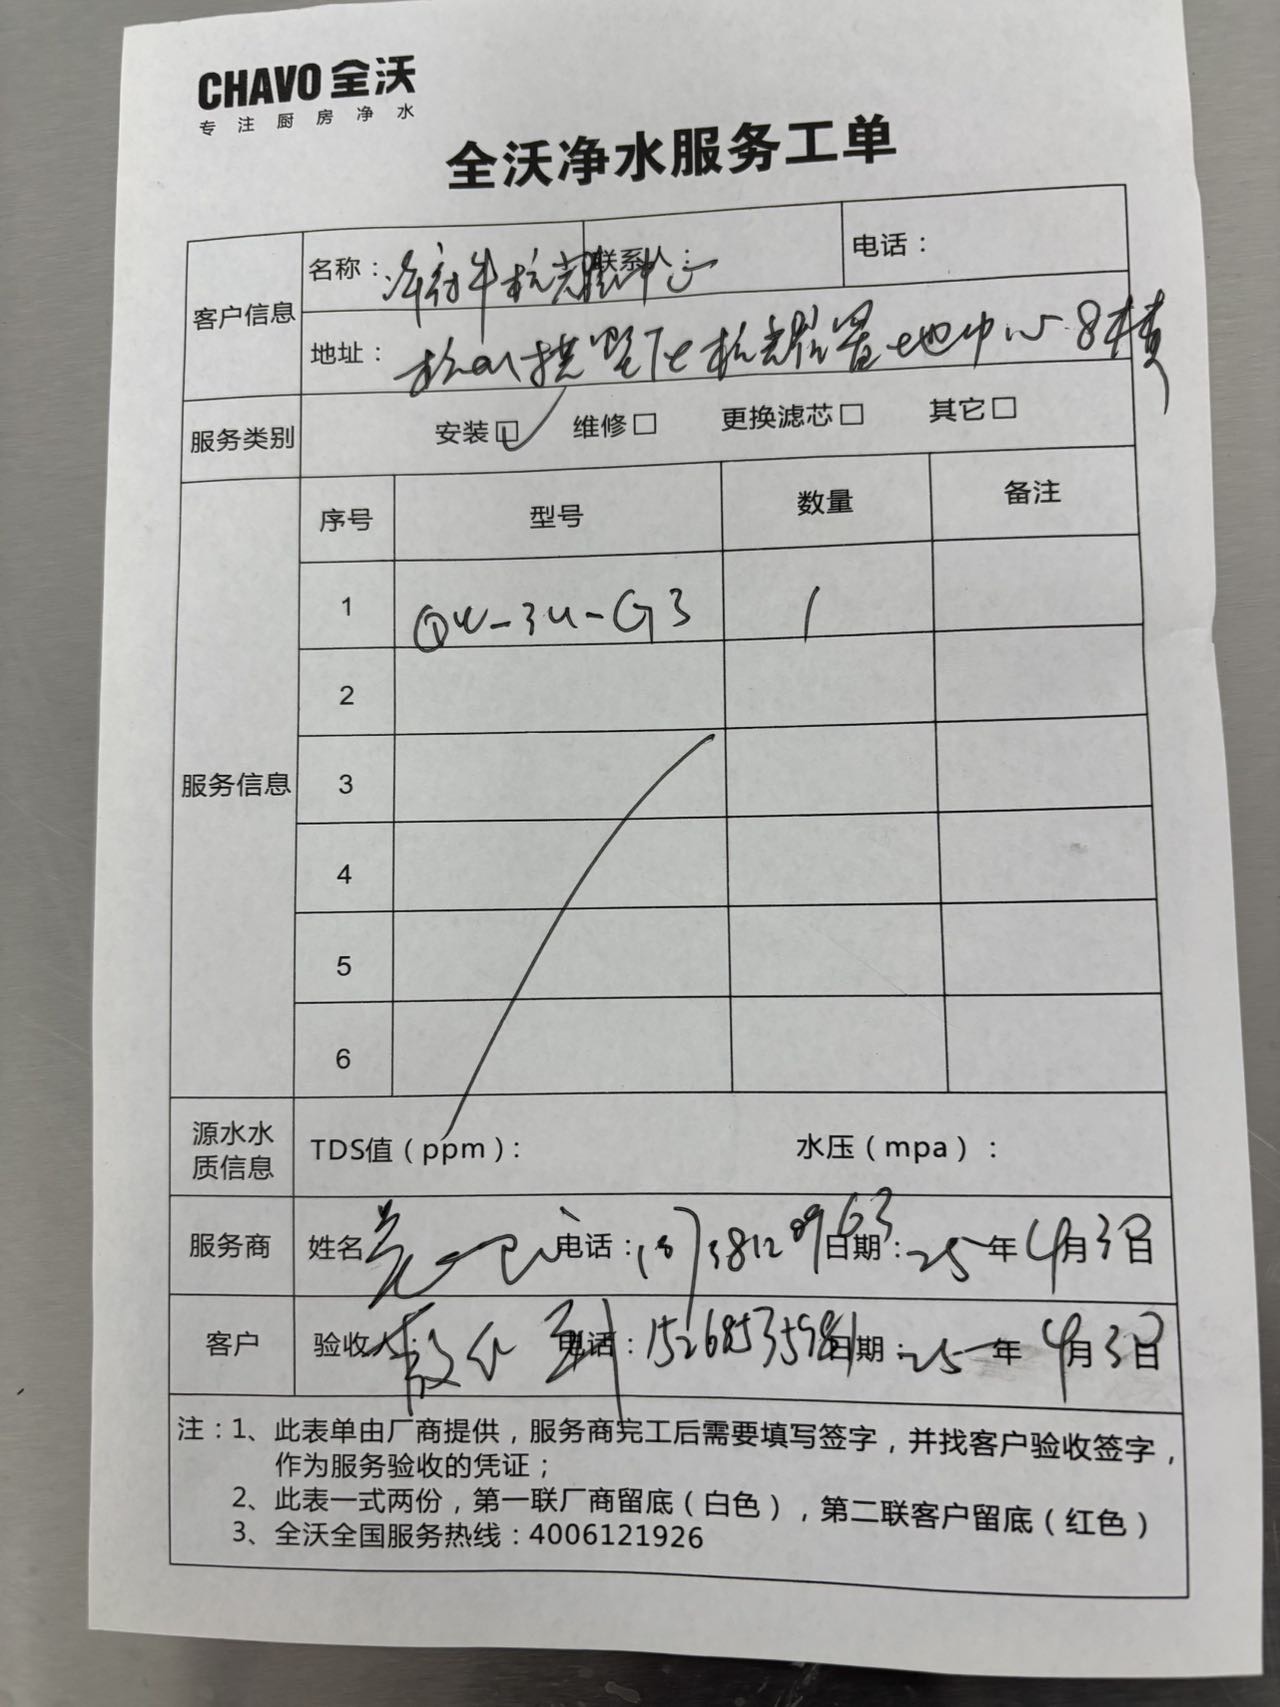 CHAVO 全沃
专注厨房净水
全沃净水服务工单
客户信息
名称：
联系人：
电话：
地址：置地中心8楼
服务类别 安装☑ 维修□ 更换滤芯□ 其它□
服务信息
序号 型号 数量 备注
1 QW-3U-G3 1
2
3
4
5
6
源水水质信息 TDS值（ppm）： 水压（mpa）：
服务商 姓名 电话： 日期：25年4月3日
客户 验收人： 电话：15268535981 日期：25年4月3日
注：1、此表单由厂商提供，服务商完工后需要填写签字，并找客户验收签字，
作为服务验收的凭证；
2、此表一式两份，第一联厂商留底（白色），第二联客户留底（红色）
3、全沃全国服务热线：4006121926